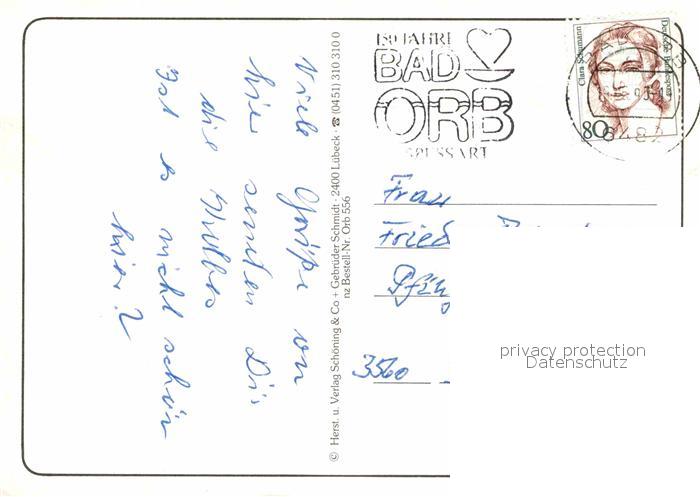 Viele Grüße von
hier senden Dir
die Müllers
Ist es nicht schön
hier?
© Herst. u. Verlag Schöning & Co + Gebrüder Schmidt · 2400 Lübeck · ☎ (0451) 310 310 0
nz Bestell-Nr. Orb 556
150 JAHRE
BAD
ORB
SPESSART
Clara Schumann
Deutsche Bundespost
80
BAD ORB
6482
Frau
Fried
Pfing
3560
privacy protection
Datenschutz